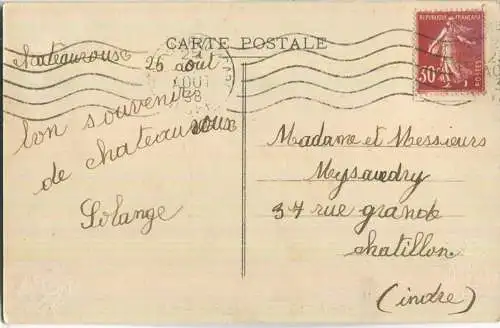 CARTE POSTALE
Chateauroux
26 août
AOUT
38
bon souvenir
de chateauroux
Solange
REPUBLIQUE FRANÇAISE
30
POSTES
Madame et Messieurs
Meysandry
34 rue grande
chatillon
(indre)